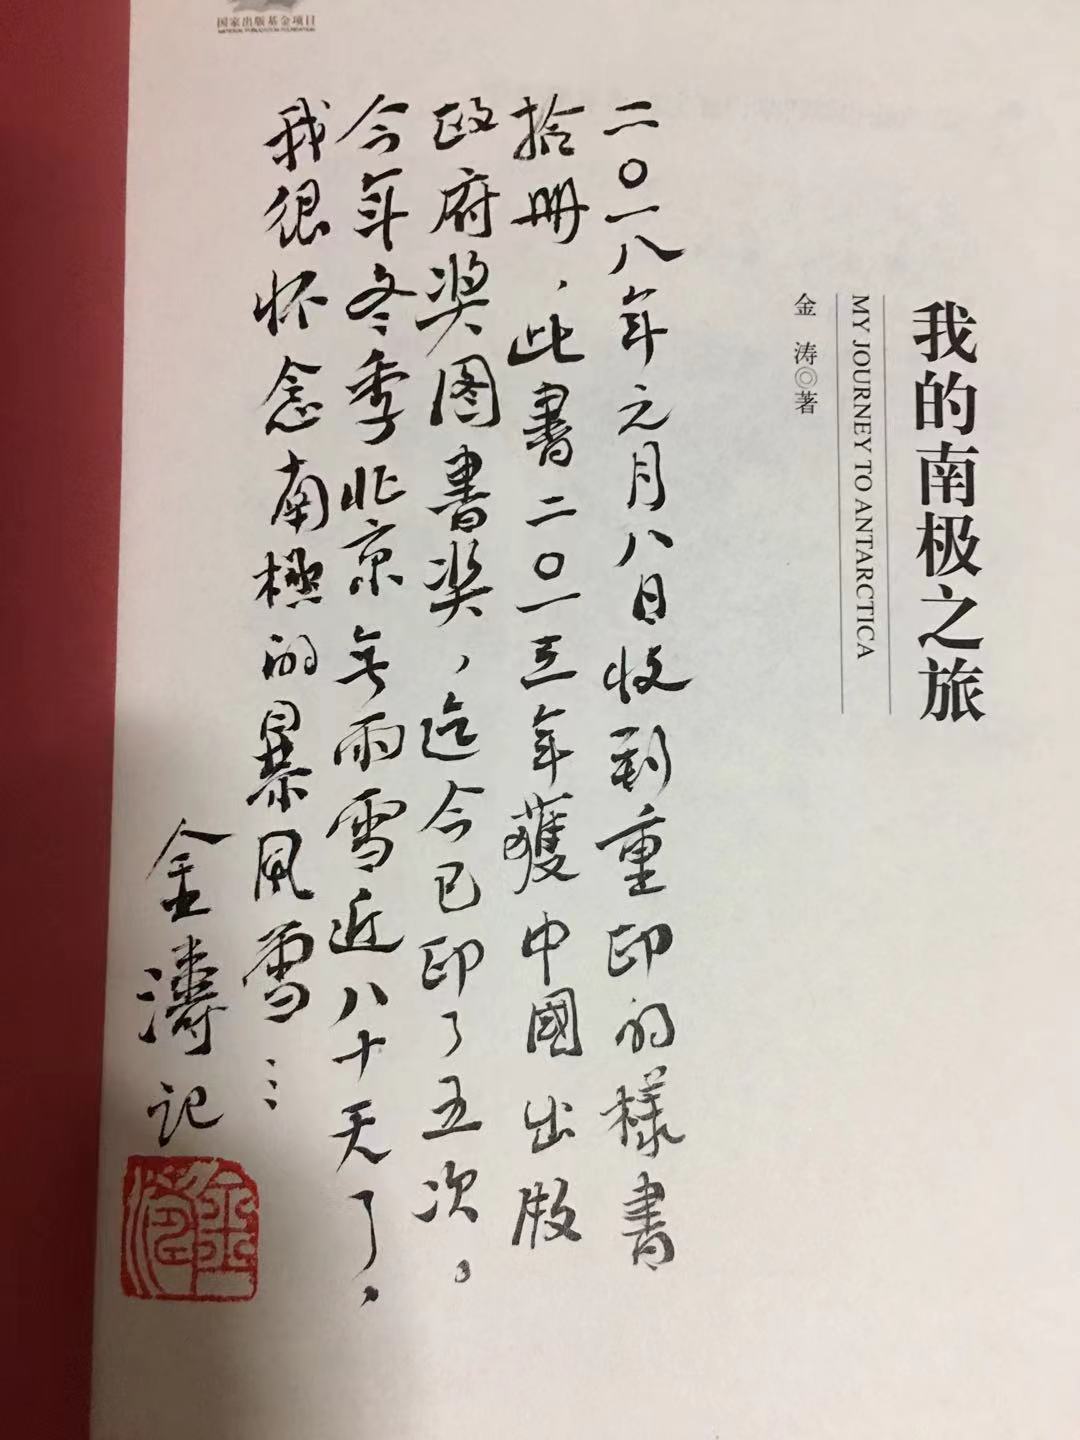 国家出版基金项目
NATIONAL PUBLICATION FOUNDATION
我的南极之旅
MY JOURNEY TO ANTARCTICA
金 涛◎著
二〇一八年元月八日收到重印的樣書
拾册，此書二〇一三年獲中國出版
政府奖图書奖，迄今已印了五次。
今年冬季北京无雨雪近八十天了，
我很怀念南極的暴風雪……
金濤记